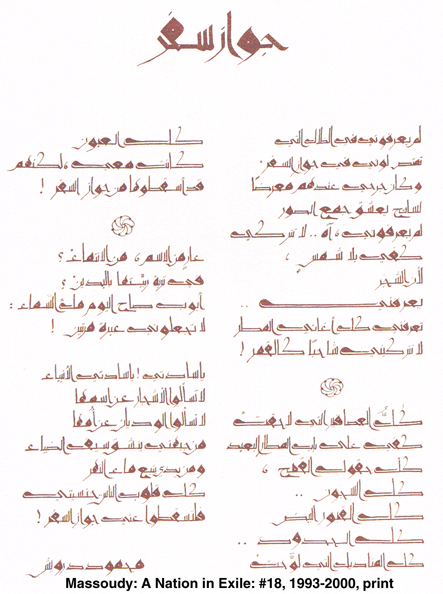 جواز سفر
لم يعرفوني في الظلال التي
تمتص لوني في جواز السفر
وكان جرحي عندهم معرضا
لسائح يعشق جمع الصور
لم يعرفوني ، آه .. لا تتركي
كفي بلا شمس ،
لأن الشجر
يعرفني ..
تعرفني كل أغاني المطر
لا تتركيني شاحبا كالقمر !
كلُّ العصافير التي لاحقت
كفي على باب المطار البعيد
كل حقول القمح ،
كل السجون ..
كل القبور البيض
كل الحدود ..
كل المناديل التي لوّحت
كل العيون
كانت معي ، لكنهم
قد أسقطوها من جواز السفر !
عار من الاسم ، من الانتماء ؟
في تربة ربيتها باليدين ؟
أيوب صاح اليوم ملء السماء :
لا تجعلوني عبرة مرتين !
يا سادتي ! يا سادتي الأنبياء
لا تسألوا الأشجار عن اسمها
لا تسألوا الوديان عن أمها
من جبهتي ينشق سيف الضياء
ومن يدي ينبع ماء النهر
كل قلوب الناس جنسيتي
فلتسقطوا عني جواز السفر !
محمود درويش
Massoudy: A Nation in Exile: #18, 1993-2000, print